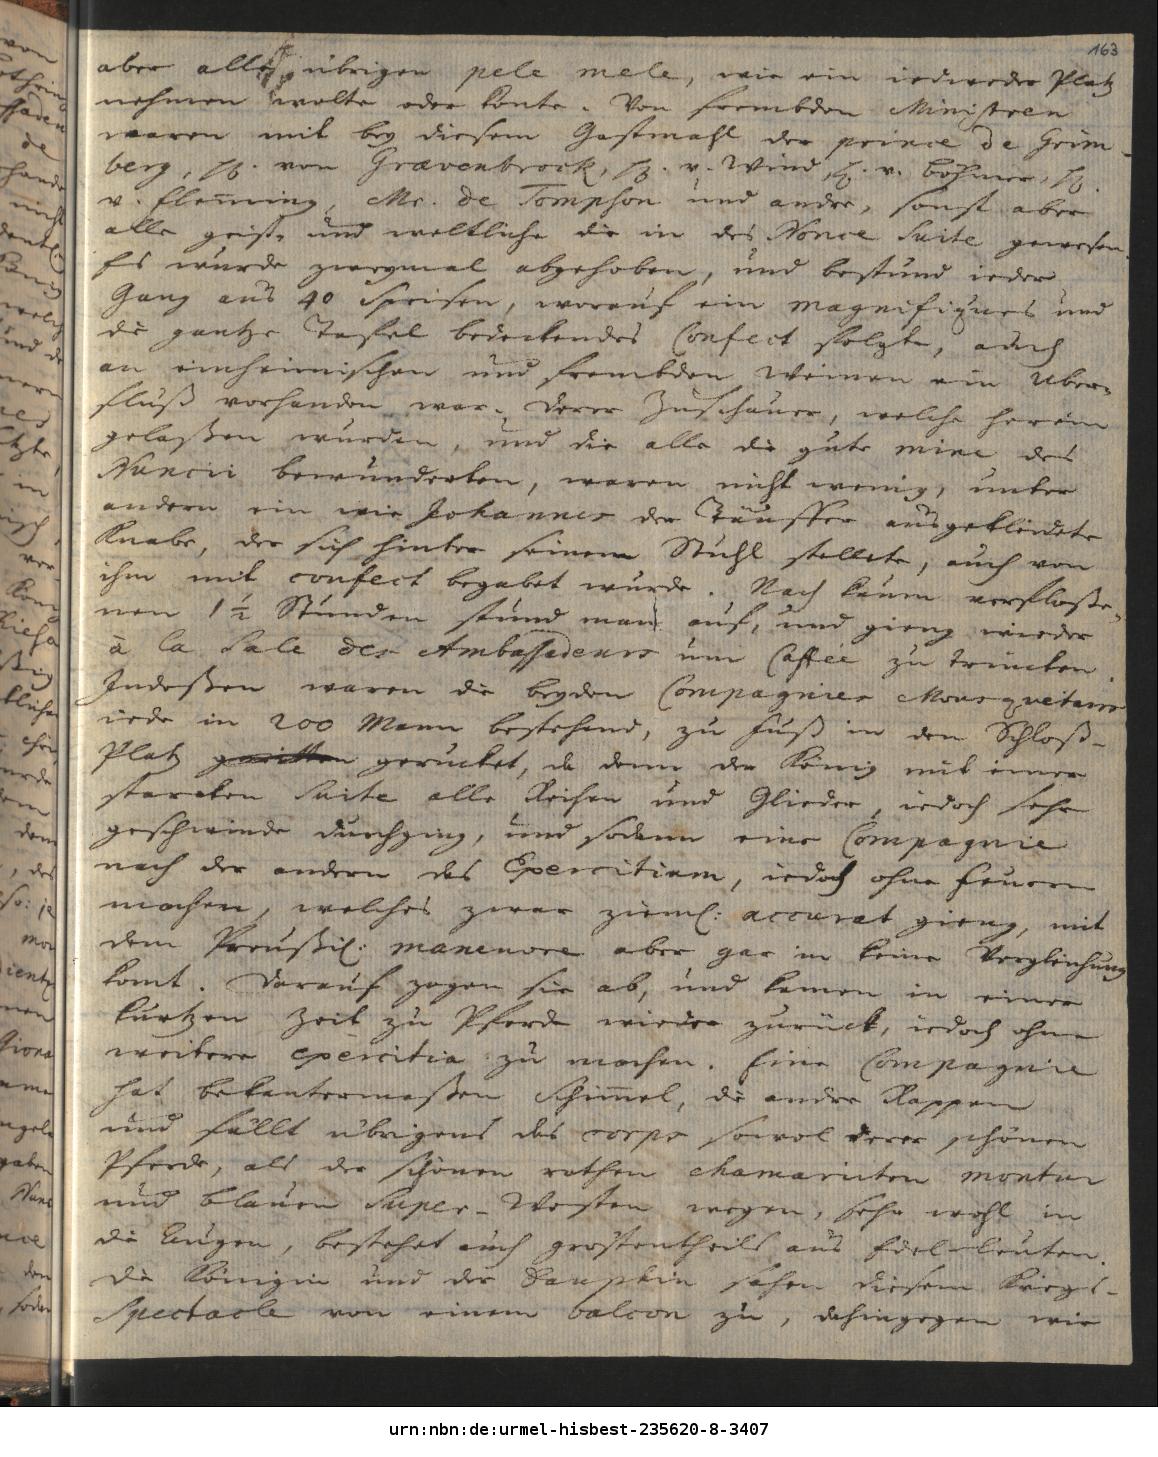 163
aber alle übrigen pele mele, wie ein iedweder Platz
nehmen wolte oder konte. Von frembden Ministren
waren mit bey diesem Gastmahl der prince de Grim-
berg, H. von Grævenbrock, H. v. Wind, H. v. Böhmer, H.
v. Flem̄ing, Mr. de Tompson und andre, sonst aber
alle geist- und weltliche die in des Nonce Suite gewesen.
Es wurde zweymal abgehoben, und bestund ieder
Gang aus 40 Speisen, worauf ein magnifiques und
die gantze Tafel bedeckendes Confect folgte, auch
an einheimischen und frembden Weinen ein Uber-
fluß vorhanden war. Derer Zuschauer, welche herein
gelaßen wurden, und die alle die gute mine des
Nuncii bewunderten, waren nicht wenig, unter
andern ein wie Johannes der Täuffer ausgekleideter
Knabe, der sich hinter seinem Stuhl stellete, auch von
ihm mit confect begabet wurde. Nach kaum verfloße-
nen 1 1/2 Stunden stund man auf, und gieng wieder
à la Sale des Ambassadeurs um Caffée zu trincken.
Indeßen waren die beyden Compagnies Mousquetairs
iede in 200 Mann bestehend, zu Fuß in den Schloß-
Platz geritten gerucket, da denn der König mit einer
starcken Suite alle Reihen und Glieder, iedoch sehr
geschwinde durchging, und sodann eine Compagnie
nach der andern das Exercitium, iedoch ohne Feuern
machen, welches zwar zieml: accurat gieng, mit
dem Preußil: maneuvre aber gar in keine Vergleichung
komt. Darauf zogen sie ab, und kamen in einer
kurtzen Zeit zu Pferde wieder zurück, iedoch ohne
weitere exercitia zu machen. Eine Compagnie
hat bekantermaßen Schim̄el, die andre Rappen
und fällt übrigens das corps sowol derer schönen
Pferde, als der schönen rothen chamarirten montur
und blauen Super-Westen wegen, sehr wohl in
die Augen, bestehet auch grostentheils aus Edel-leuten.
Die Königin und der Dauphin sahen diesem Kriegs-
Spectacle von einem balcon zu, dahingegen wir
urn:nbn:de:urmel-hisbest-235620-8-3407